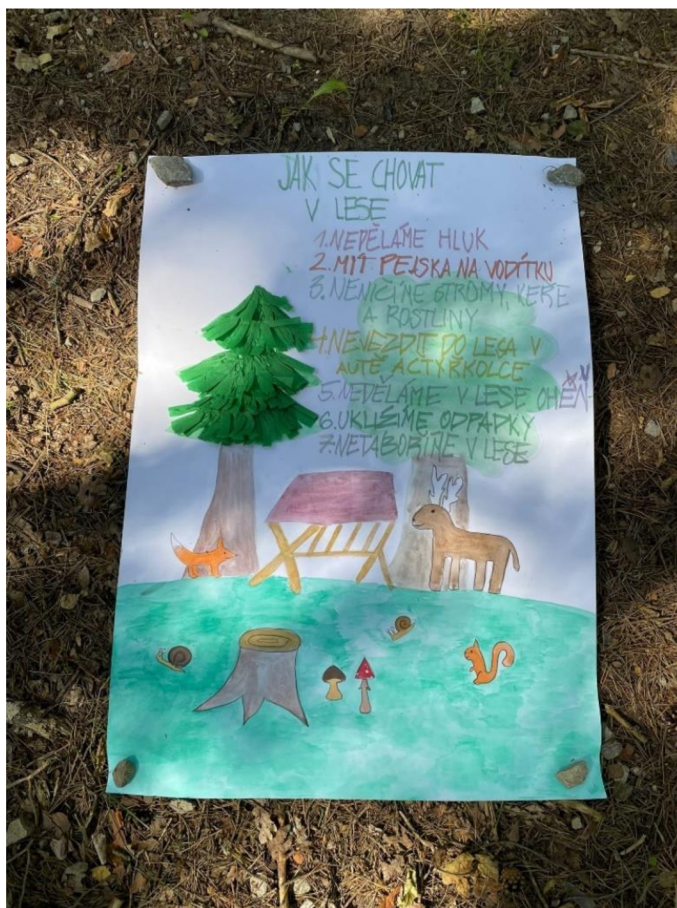 JAK SE CHOVAT
V LESE
1. NEDĚLÁME HLUK
2. MÍT PEJSKA NA VODÍTKU
3. NENIČÍME STROMY, KEŘE
A ROSTLINY
4. NEVEZDIT DO LESA V
AUTĚ A ČTYŘKOLCE
5. NEDĚLÁME V LESE OHĚŇ
6. UKLIZÍME ODPADKY
7. NETÁBOŘÍME V LESE